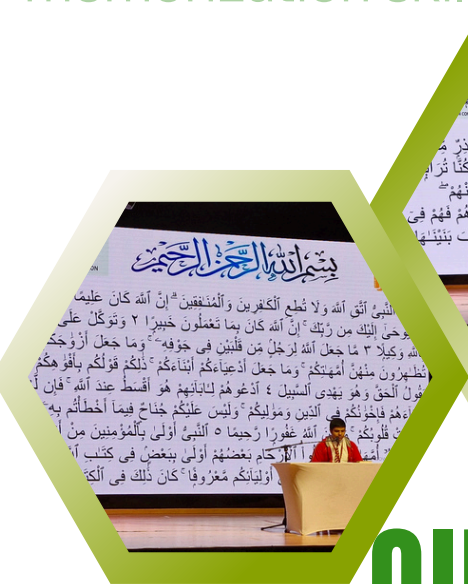 بِسْمِ اللَّهِ الرَّحْمَٰنِ الرَّحِيمِ
ٱلنَّبِىُّ ٱتَّقِ ٱللَّهَ وَلَا تُطِعِ ٱلْكَٰفِرِينَ وَٱلْمُنَٰفِقِينَ ۗ إِنَّ ٱللَّهَ كَانَ عَلِيمًا
يُوحَىٰٓ إِلَيْكَ مِن رَّبِّكَ ۚ إِنَّ ٱللَّهَ كَانَ بِمَا تَعْمَلُونَ خَبِيرًا ٢ وَتَوَكَّلْ عَلَى
وَكِيلًا ٣ مَّا جَعَلَ ٱللَّهُ لِرَجُلٍ مِّن قَلْبَيْنِ فِى جَوْفِهِۦ ۚ وَمَا جَعَلَ أَزْوَٰجَكُمُ
تُظَٰهِرُونَ مِنْهُنَّ أُمَّهَٰتِكُمْ ۚ وَمَا جَعَلَ أَدْعِيَآءَكُمْ أَبْنَآءَكُمْ ۚ ذَٰلِكُمْ قَوْلُكُم بِأَفْوَٰهِكُمْ
يَقُولُ ٱلْحَقَّ وَهُوَ يَهْدِى ٱلسَّبِيلَ ٤ ٱدْعُوهُمْ لِـَٔابَآئِهِمْ هُوَ أَقْسَطُ عِندَ ٱللَّهِ ۚ فَإِن لَّمْ
ءَابَآءَهُمْ فَإِخْوَٰنُكُمْ فِى ٱلدِّينِ وَمَوَٰلِيكُمْ ۚ وَلَيْسَ عَلَيْكُمْ جُنَاحٌ فِيمَآ أَخْطَأْتُم بِهِۦ
قُلُوبُكُمْ ۚ ٱللَّهُ غَفُورًا رَّحِيمًا ٥ ٱلنَّبِىُّ أَوْلَىٰ بِٱلْمُؤْمِنِينَ مِنْ
ٱلْأَرْحَامِ بَعْضُهُمْ أَوْلَىٰ بِبَعْضٍ فِى كِتَٰبِ
أَوْلِيَآئِكُم مَّعْرُوفًا ۚ كَانَ ذَٰلِكَ فِى
كُنَّا
فَهُمْ فِى